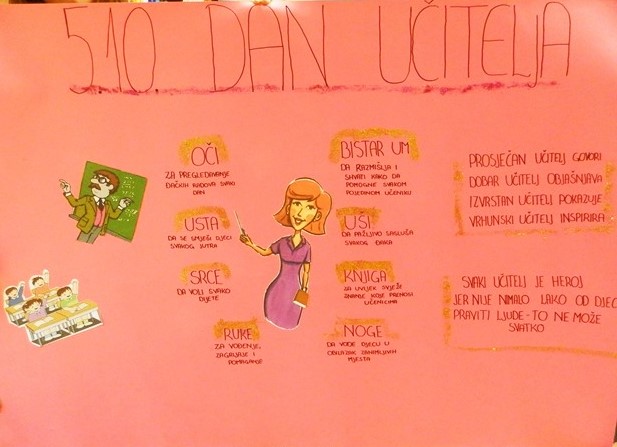 5.10. DAN UČITELJA
OČI
ZA PREGLEDAVANJE
ĐAČKIH RADOVA SVAKI
DAN
USTA
DA SE SMJEŠI DJECI
SVAKOG JUTRA
SRCE
DA VOLI SVAKO
DIJETE
RUKE
ZA VOĐENJE,
ZAGRLJAJE I
POMAGANJE
BISTAR UM
DA RAZMIŠLJA I
SHVATI KAKO DA
POMOGNE SVAKOM
POJEDINOM UČENIKU
UŠI
DA PAŽLJIVO SASLUŠA
SVAKOG ĐAKA
KNJIGA
ZA UVIJEK SVJEŽE
ZNANJE KOJE PRENOSI
UČENICIMA
NOGE
DA VODE DJECU U
OBILAZAK ZANIMLJIVIH
MJESTA
PROSJEČAN UČITELJ GOVORI
DOBAR UČITELJ OBJAŠNJAVA
IZVRSTAN UČITELJ POKAZUJE
VRHUNSKI UČITELJ INSPIRIRA
SVAKI UČITELJ JE HEROJ
JER NIJE NIMALO LAKO OD DJEC
PRAVITI LJUDE - TO NE MOŽE
SVATKO